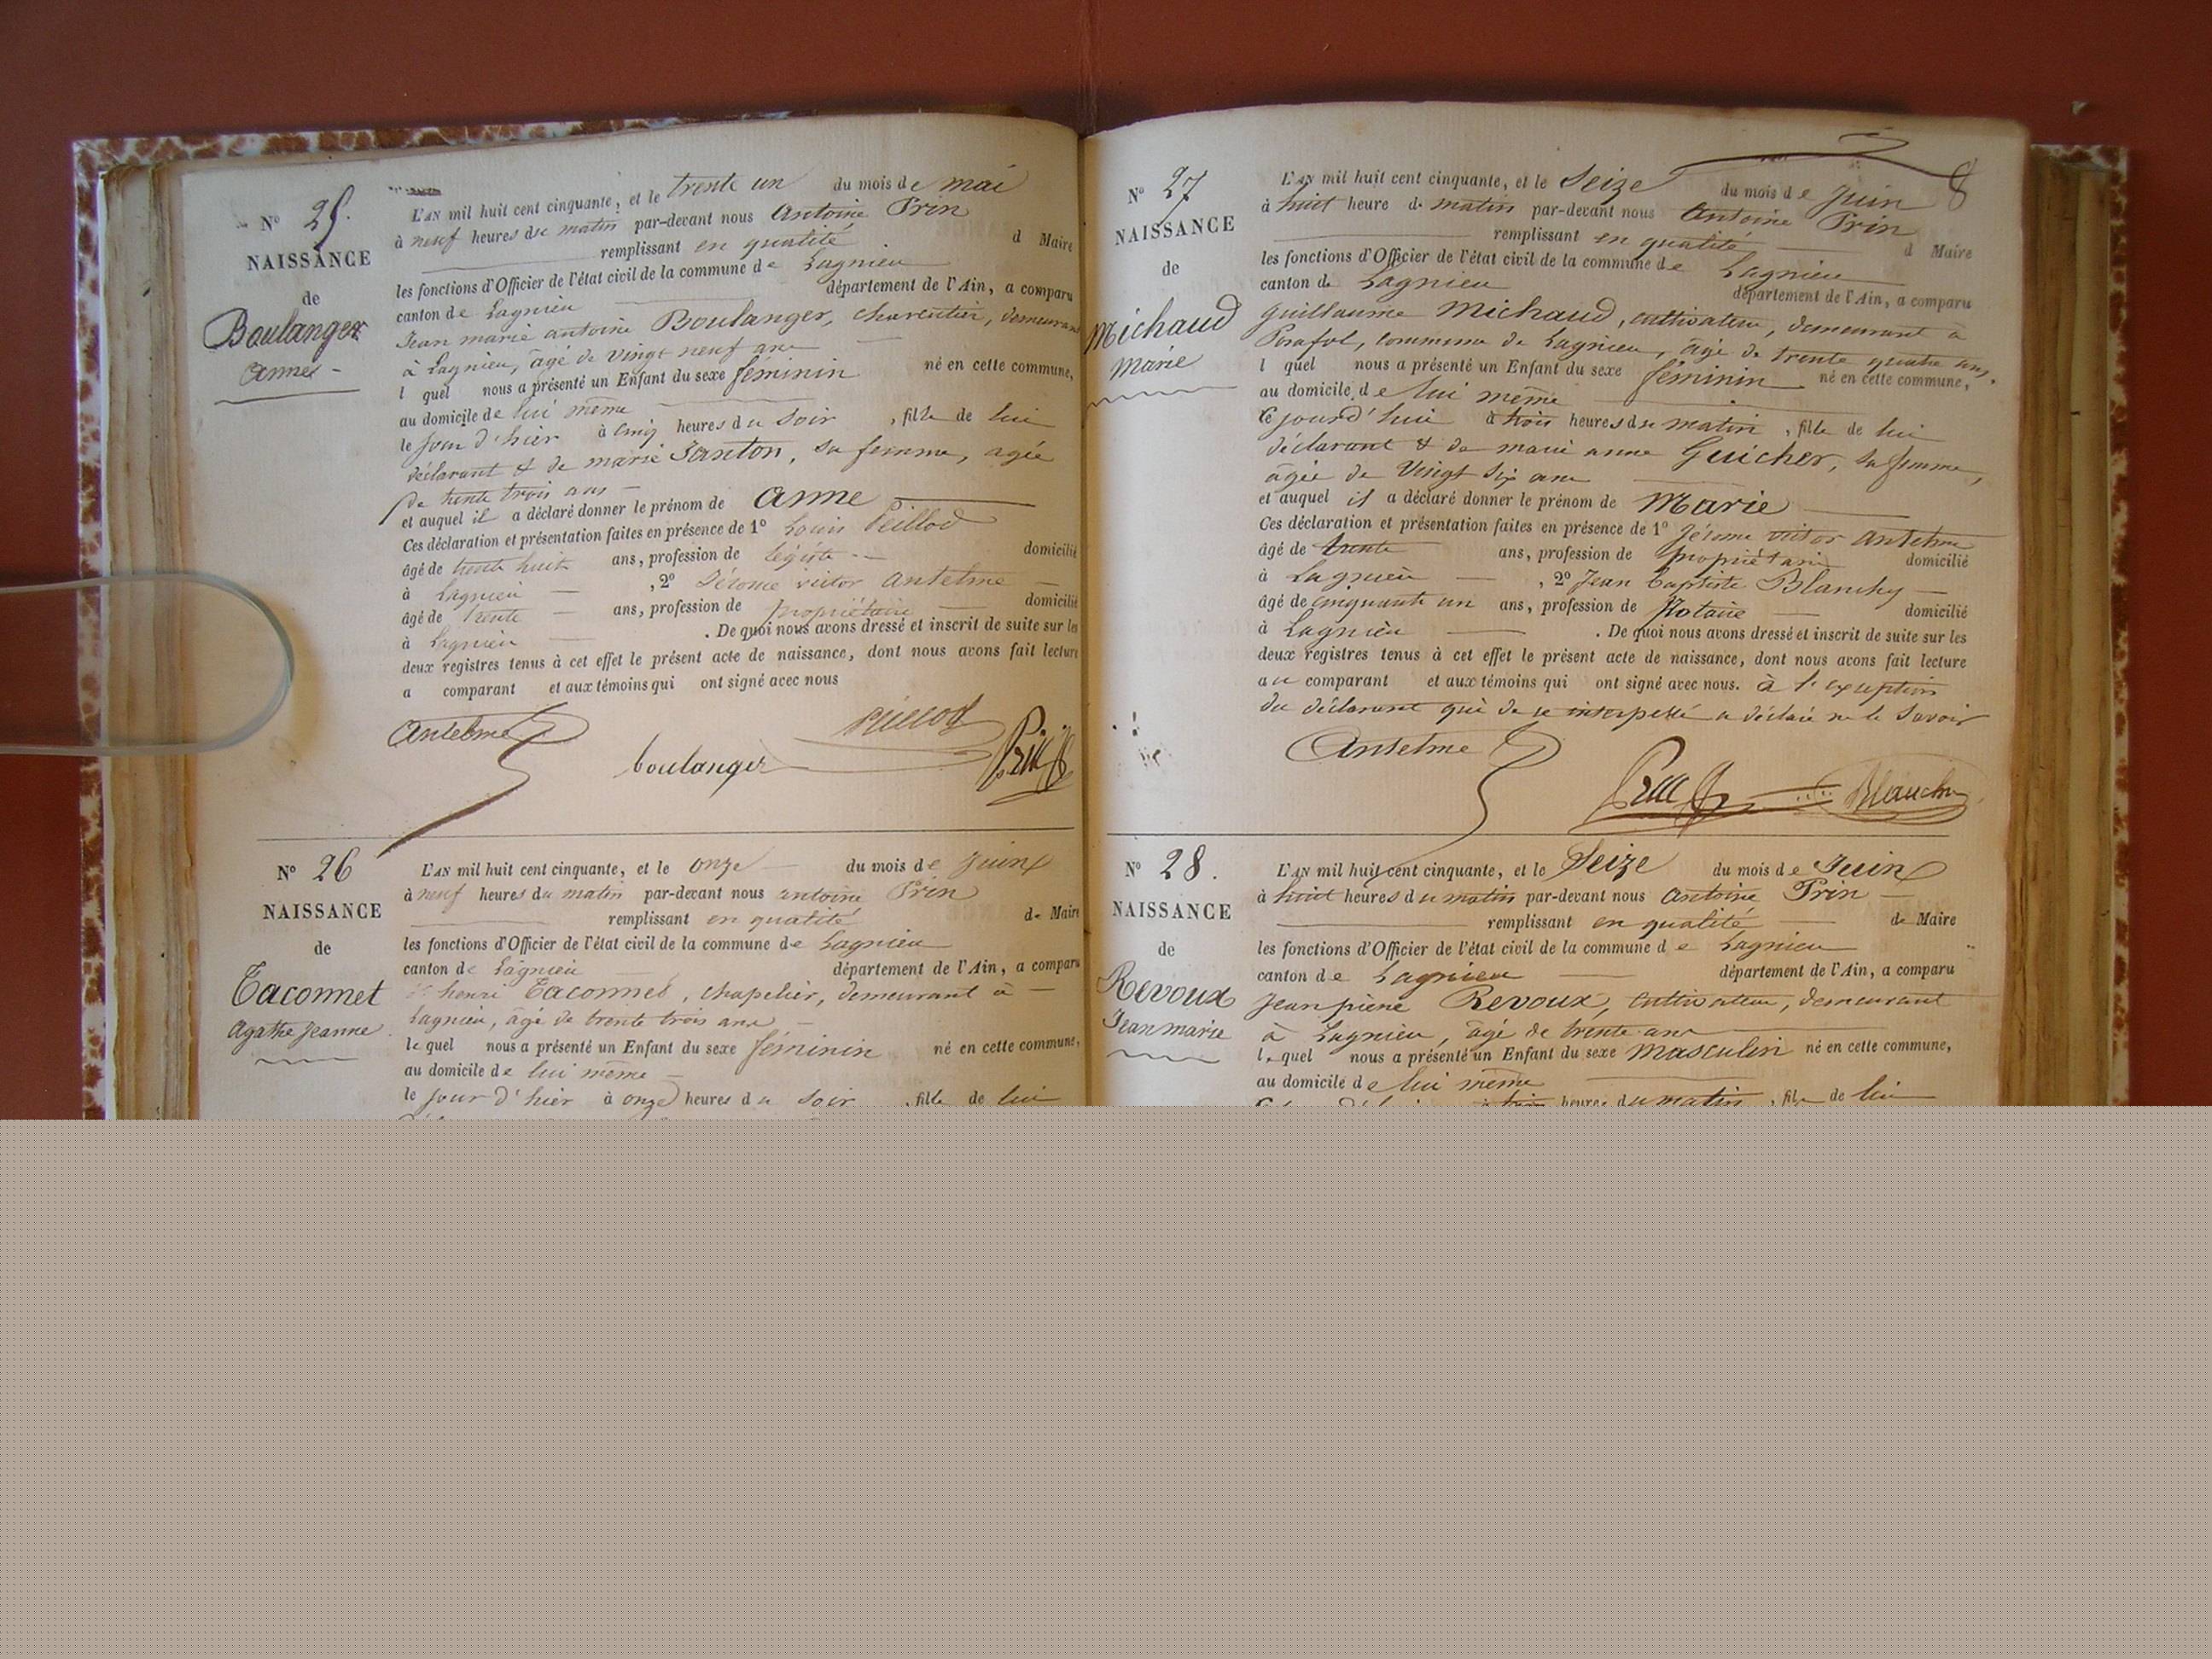 N° 25.
NAISSANCE
de
Boulanger
Anne
L'AN mil huit cent cinquante, et le trente un du mois de mai
à neuf heures du matin par-devant nous Antoine Prin
remplissant en qualité d Maire
les fonctions d'Officier de l'état civil de la commune de Lagnieu
canton de Lagnieu département de l'Ain, a comparu
Jean marie antoine Boulanger, charentier, demeurant
à Lagnieu, âgé de vingt neuf ans
l quel nous a présenté un Enfant du sexe féminin né en cette commune,
au domicile de lui même
le jour d'hier à cinq heures du soir, fille de lui
déclarant & de marie Janton, sa femme, agée
de trente trois ans
et auquel il a déclaré donner le prénom de Anne
Ces déclaration et présentation faites en présence de 1° Louis Peillod
âgé de trente huit ans, profession de légiste domicilié
à Lagnieu, 2° Jérome victor Antelme
âgé de trente ans, profession de propriétaire domicilié
à Lagnieu. De quoi nous avons dressé et inscrit de suite sur les
deux registres tenus à cet effet le présent acte de naissance, dont nous avons fait lecture
a comparant et aux témoins qui ont signé avec nous
Antelme boulanger Peillod Prin
N° 26
NAISSANCE
de
Taconnet
Agathe Jeanne
L'AN mil huit cent cinquante, et le onze du mois de juin
à neuf heures du matin par-devant nous antoine Prin
remplissant en qualité de Maire
les fonctions d'Officier de l'état civil de la commune de Lagnieu
canton de Lagnieu département de l'Ain, a comparu
henri Taconnet, chapelier, demeurant à
Lagnieu, âgé de trente trois ans
le quel nous a présenté un Enfant du sexe féminin né en cette commune,
au domicile de lui même
le jour d'hier à onze heures du soir, fille de lui
N° 27
NAISSANCE
de
Michaud
Marie
8
L'AN mil huit cent cinquante, et le Seize du mois de juin
à huit heure d. matin par-devant nous Antoine Prin
remplissant en qualité d Maire
les fonctions d'Officier de l'état civil de la commune de Lagnieu
canton de Lagnieu département de l'Ain, a comparu
guillaume Michaud, cultivateur, demeurant à
Posafol, commune de Lagnieu, âgé de trente quatre ans.
l quel nous a présenté un Enfant du sexe féminin né en cette commune,
au domicile de lui même
ce jourd'hui à trois heures du matin, fille de lui
déclarant & de marie anne Guicher, sa femme,
âgée de Vingt Six ans
et auquel il a déclaré donner le prénom de Marie
Ces déclaration et présentation faites en présence de 1° Jérome victor Antelme
âgé de trente ans, profession de propriétaire domicilié
à Lagnieu, 2° Jean baptiste Blanchy
âgé de cinquante un ans, profession de Notaire domicilié
à Lagnieu. De quoi nous avons dressé et inscrit de suite sur les
deux registres tenus à cet effet le présent acte de naissance, dont nous avons fait lecture
au comparant et aux témoins qui ont signé avec nous. à l'exception
du déclarant qui de ce interpellé a déclaré ne le Savoir
Antelme Prin Blanchy
N° 28.
NAISSANCE
de
Revoux
Jean marie
L'AN mil huit cent cinquante, et le Seize du mois de Juin
à huit heures du matin par-devant nous Antoine Prin
remplissant en qualité de Maire
les fonctions d'Officier de l'état civil de la commune de Lagnieu
canton de Lagnieu département de l'Ain, a comparu
Jean pierre Revoux, cultivateur, demeurant
à Lagnieu, âgé de trente ans
le quel nous a présenté un Enfant du sexe Masculin né en cette commune,
au domicile de lui même
heures du matin, fil de lui